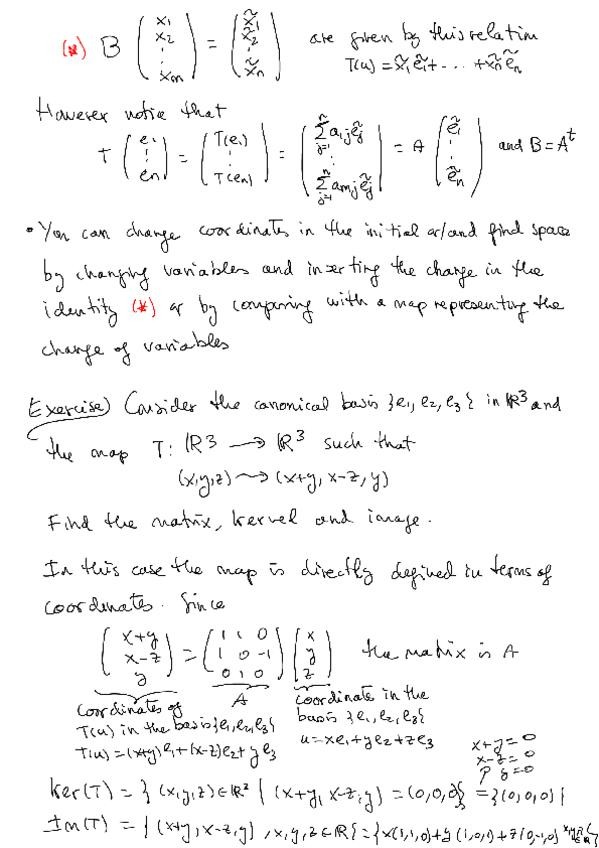 (*) B (x₁ x₂ ⋮ xₘ) = (x̃₁ x̃₂ ⋮ x̃ₙ) are given by this relation
T(u) = x̃₁ẽ₁ + ... + x̃ₙẽₙ
However notice that
T (e₁ ⋮ eₙ) = (T(e₁) ⋮ T(eₙ)) = (∑ⁿⱼ₌₁ a₁ⱼẽⱼ ⋮ ∑ⁿⱼ₌₁ aₘⱼẽⱼ) = A (ẽ₁ ⋮ ẽₙ) and B = Aᵗ
• You can change coordinates in the initial or/and find space
by changing variables and inserting the change in the
identity (*) or by comparing with a map representing the
change of variables
Exercise) Consider the canonical basis {e₁, e₂, e₃} in ℝ³ and
the map T: ℝ³ → ℝ³ such that
(x,y,z) ⇝ (x+y, x-z, y)
Find the matrix, kernel and image.
In this case the map is directly defined in terms of
coordinates. Since
(x+y x-z y) = (1 1 0 / 1 0 -1 / 0 1 0) (x y z) the matrix is A
coordinates of T(u) in the basis {e₁, e₂, e₃}
T(u) = (x+y)e₁ + (x-z)e₂ + y e₃
A
coordinate in the basis {e₁, e₂, e₃}
u = xe₁ + ye₂ + ze₃
x+y=0
x-z=0
y=0
Ker(T) = { (x,y,z) ∈ ℝ² | (x+y, x-z, y) = (0,0,0)} = {(0,0,0)}
Im(T) = { (x+y, x-z, y), x,y,z ∈ ℝ} = {x(1,1,0) + y(1,0,1) + z(0,-1,0)